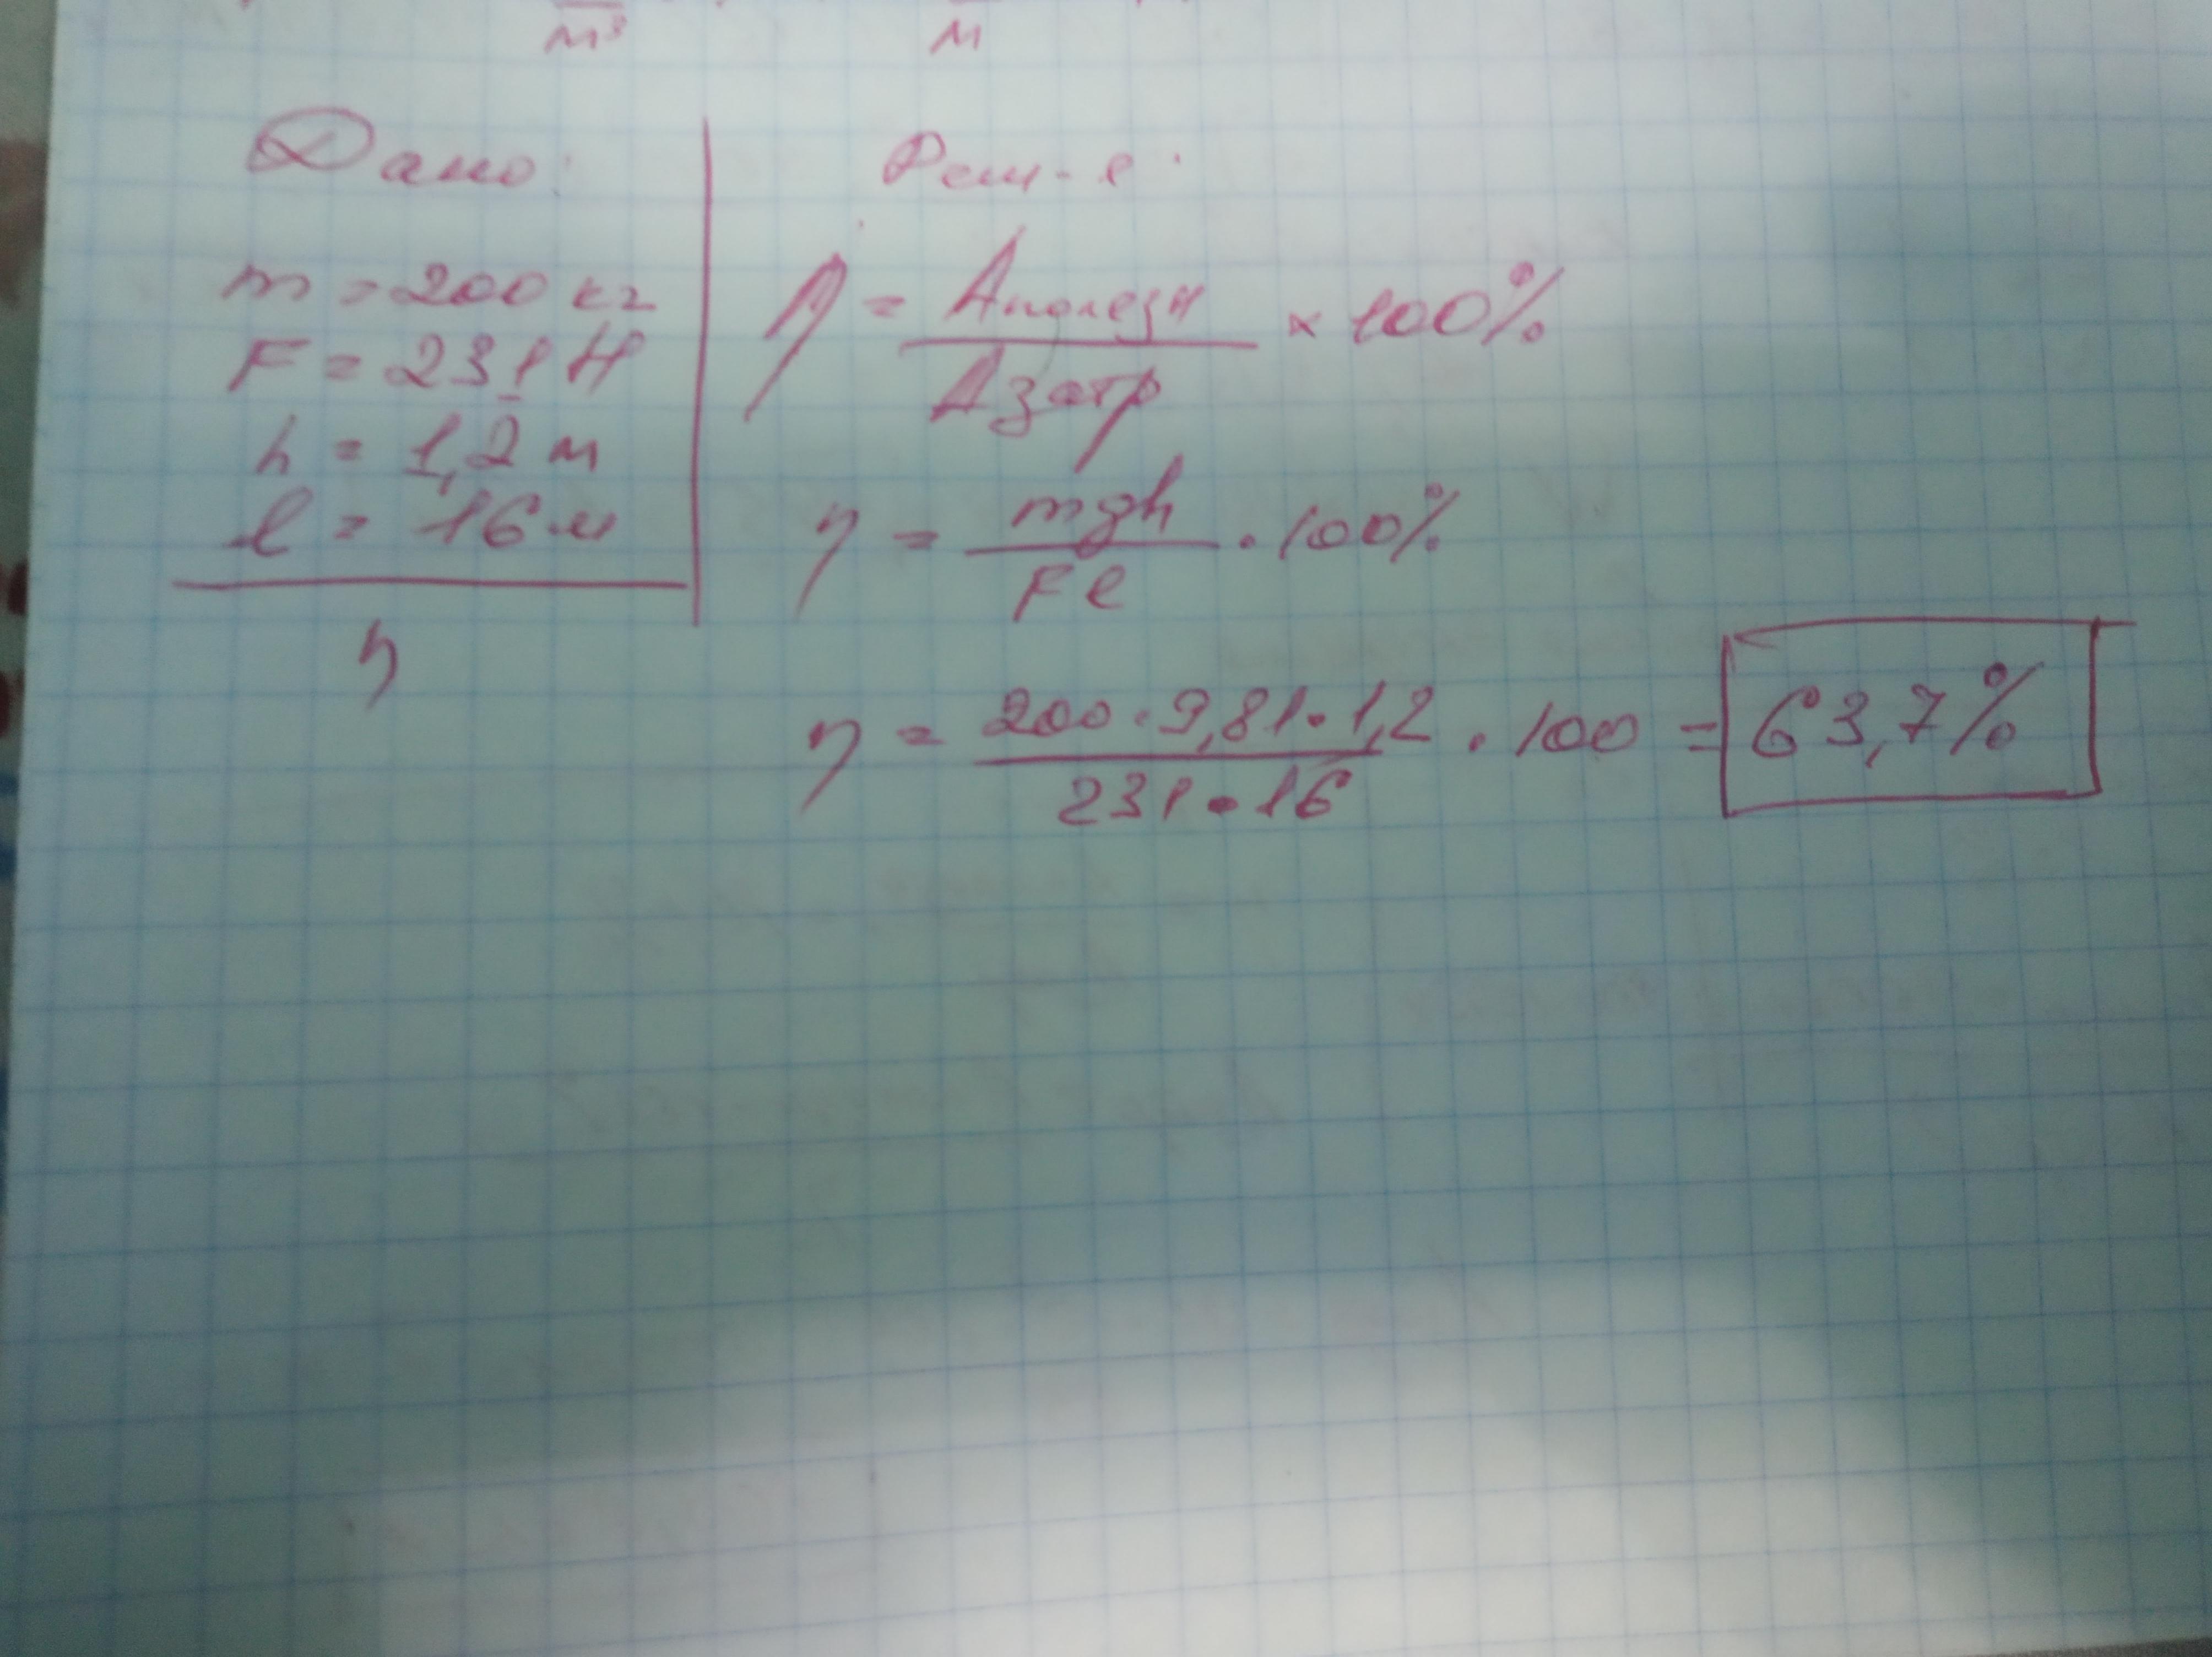 м³ м
Дано:
m = 200 кг
F = 231 Н
h = 1,2 м
l = 16 м
η
Реш-е:
η = Aполезн / Aзатр × 100%
η = mgh / Fl · 100%
η = 200 · 9,81 · 1,2 / 231 · 16 · 100 = 63,7%